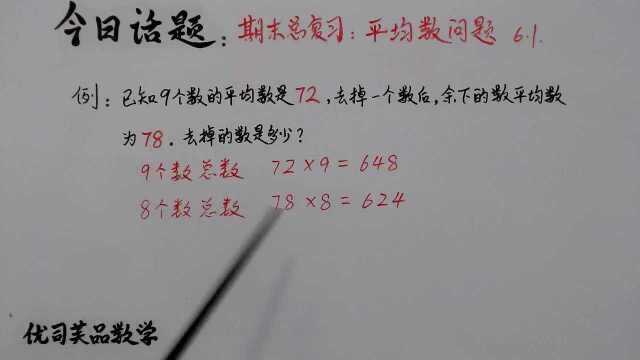 今日话题：期末总复习：平均数问题 6.1.
例：已知9个数的平均数是72，去掉一个数后，余下的数平均数
为78．去掉的数是多少？
9个数总数 72×9=648
8个数总数 78×8=624
优司芙品数学